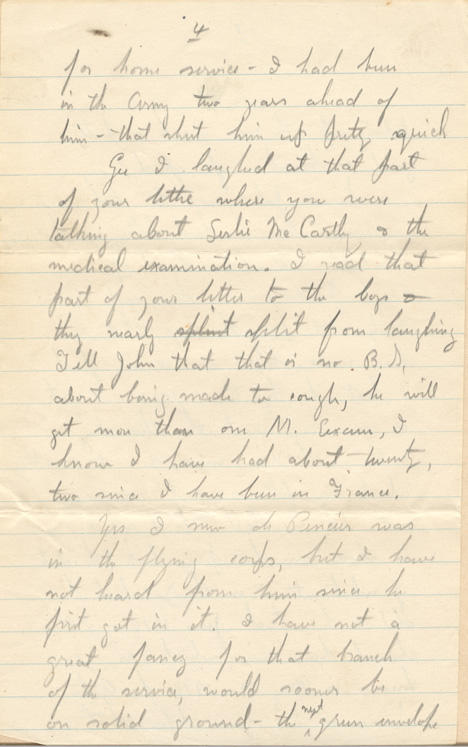 4
for home service - I had been
in the Army two years ahead of
him - that shut him up pretty quick
Gee I laughed at that part
of your lettre where you were
talking about Leslie McCarthy & the
medical examination. I read that
part of your letter to the boys &
they nearly splint split from laughing
Tell John that that is no. B.S,
about being made to cough, he will
get more than one M. Exam, I
know I have had about twenty,
two since I have been in France.
Yes I new de Pencier was
in the flying corps, but I have
not heard from him since he
first got in it. I have not a
great fancy for that branch
of the service, would sooner be
on solid ground - the next green envelope